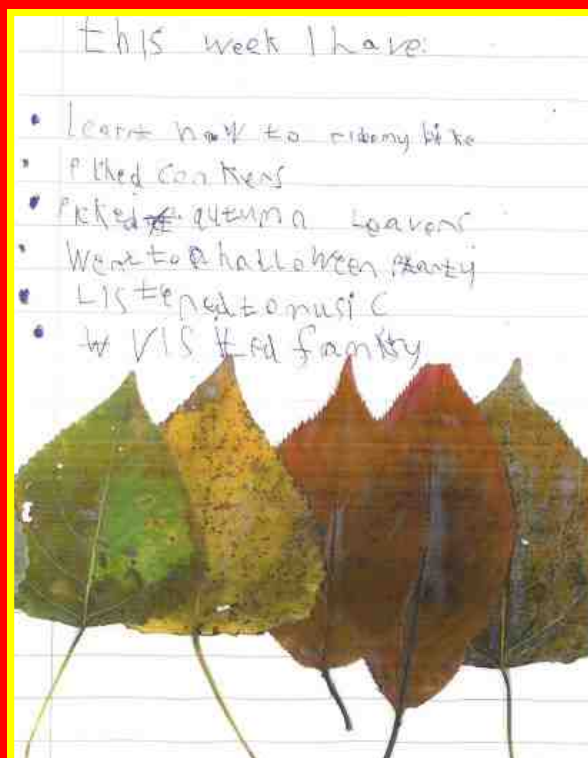 this week I have:
• learnt how to ride my bike
• Picked conkers
• Picked autumn Leavens
• Went to a halloween Party
• Listened to music
• VISited family